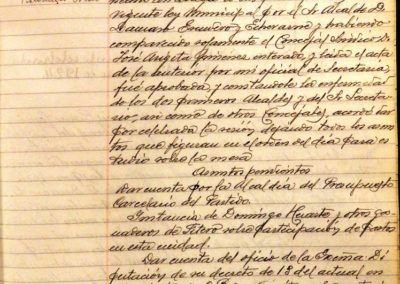 vigente ley Municipal por el Sr Alcalde D.
Escudero y Echeverria y habiendo
comparecido solamente el Concejal Síndico D.
José Angosta Gimenez enterado, y leida el acta
de la anterior por mi oficial de Secretaria,
fué aprobada, y constandole la enfermedad
de los dos primeros Alcaldes y del Sr Secreta-
rio, asi como de otros Concejales, acordó dar
por celebrada la sesión dejando todos los asun-
tos que figuran en el orden del día para es-
tudio sobre la mesa
Asuntos pendientes
Dar cuenta por la Alcaldia del Presupuesto
Carcelario del Partido.
Instancia de Domingo Huarte y otros ga-
naderos de Fitero sobre participación de pastos
en esta ciudad.
Dar cuenta del oficio de la Excma Di-
putación de su decreto de 18 del actual en